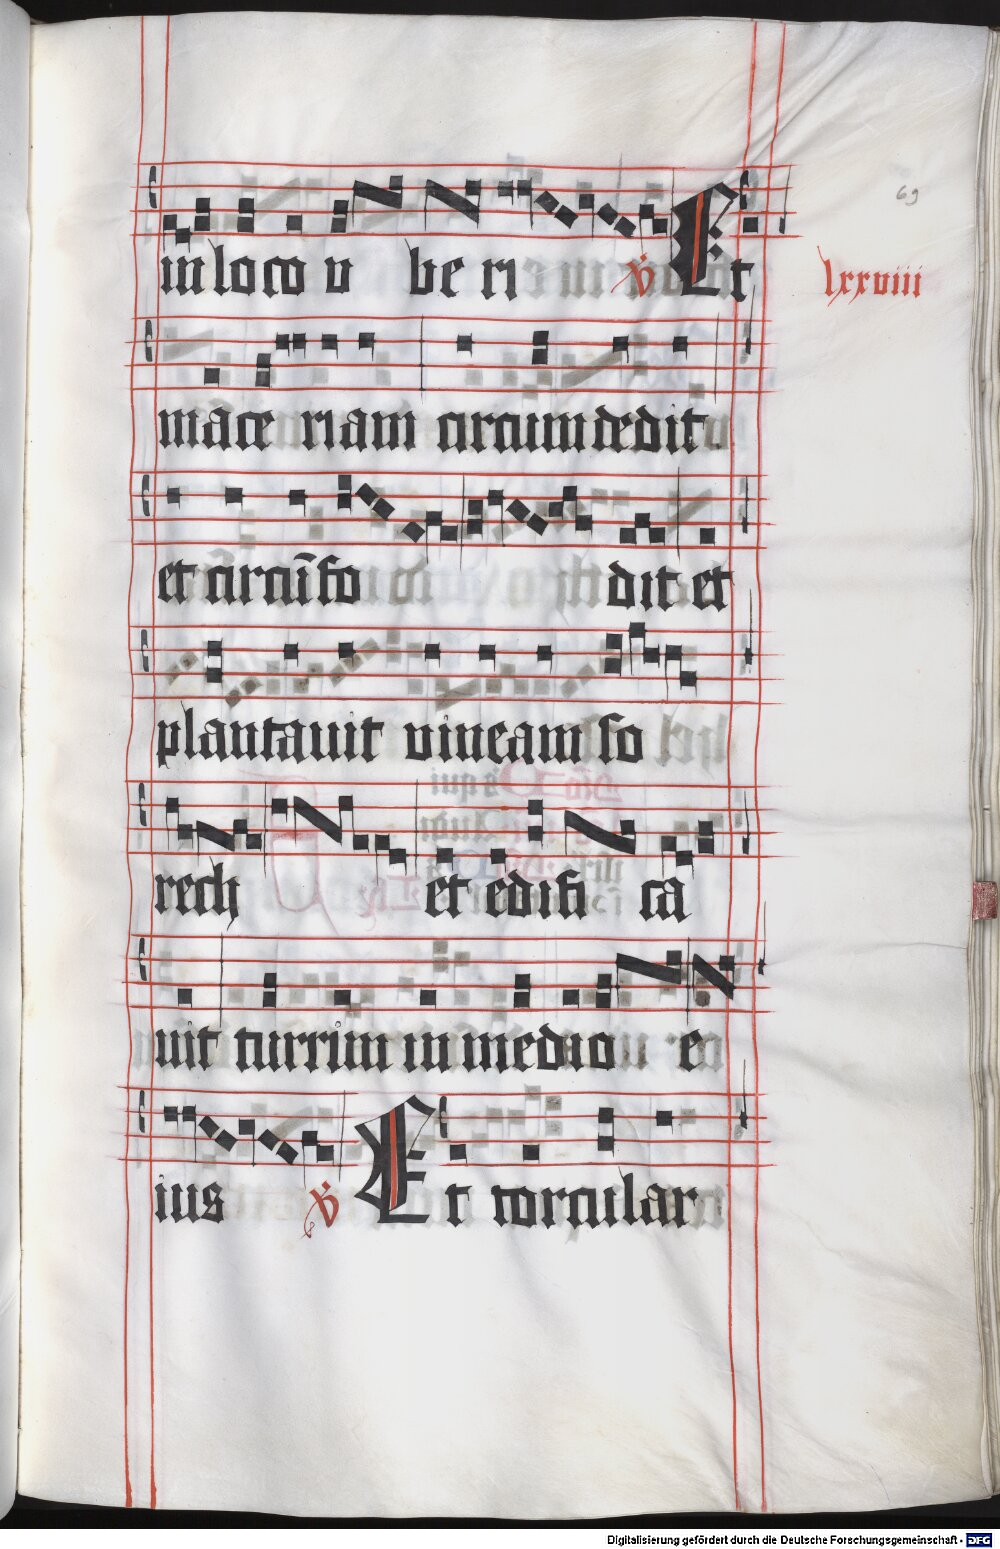 69
in loco v be ri ℣ Et
lxxviii
mace riam circumdedit
et circūfo dit et
plantauit vineam so
rech et edifi ca
uit turrim in medio e
ius ℣ Et torcular
Digitalisierung gefördert durch die Deutsche Forschungsgemeinschaft - DFG